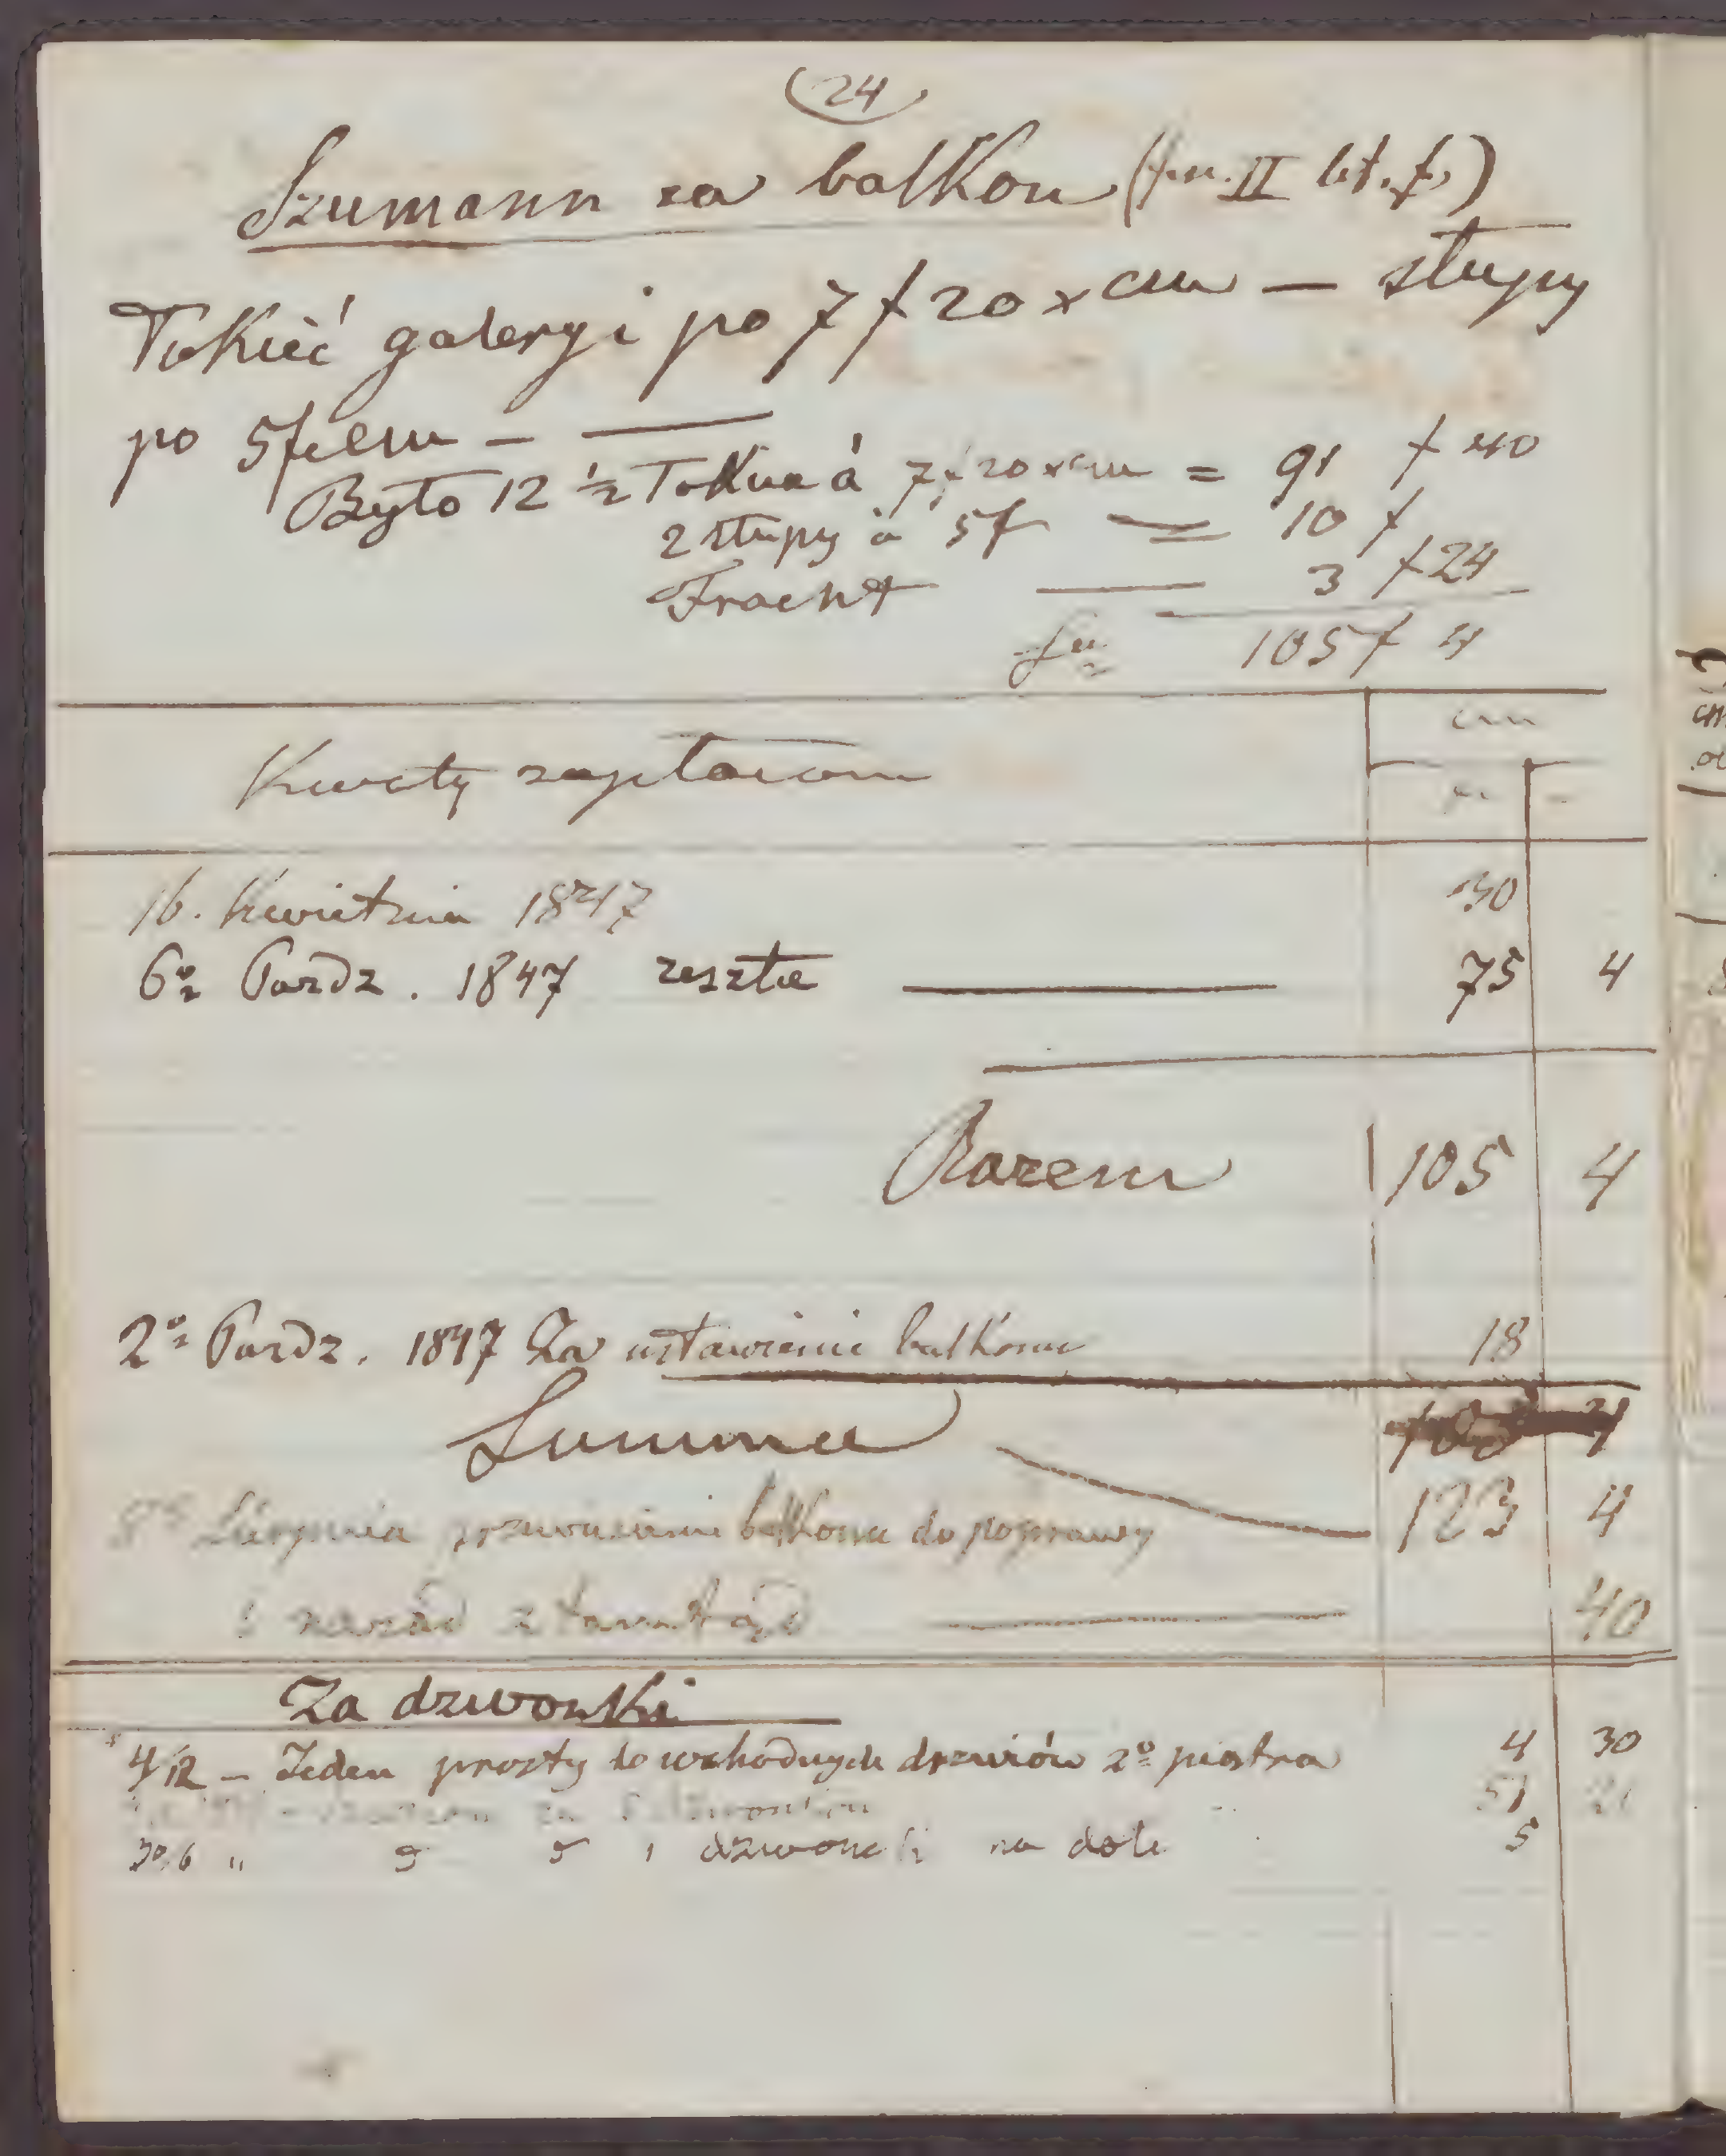 24
Szumann za balkon (fm. II lit. f.)
Łokieć galeryi po 7 f 20 xcm — słupy
po 5 f cm —
Było 12 ½ Łokcia á 7 f 20 xcm = 91 f 40
2 słupy à 5 f = 10 f
Fracht — 3 f 24
105 f 4
cm
Kwoty zapłacone
16. Kwietnia 1847 30
6º Paźdz. 1847 resztę — 75 4
Razem 105 4
2º Paźdz. 1847 Za ustawienie balkonu 18
Summa 123 4
Sierpnia balkonu do poprawy
i nazad z tamtąd — 40
Za dzwonki
4/12 — Jeden prosty do wschodnych drzwiów 2º piętra 4 30
za 51
30/6 " 1 dzwonek na dole 5